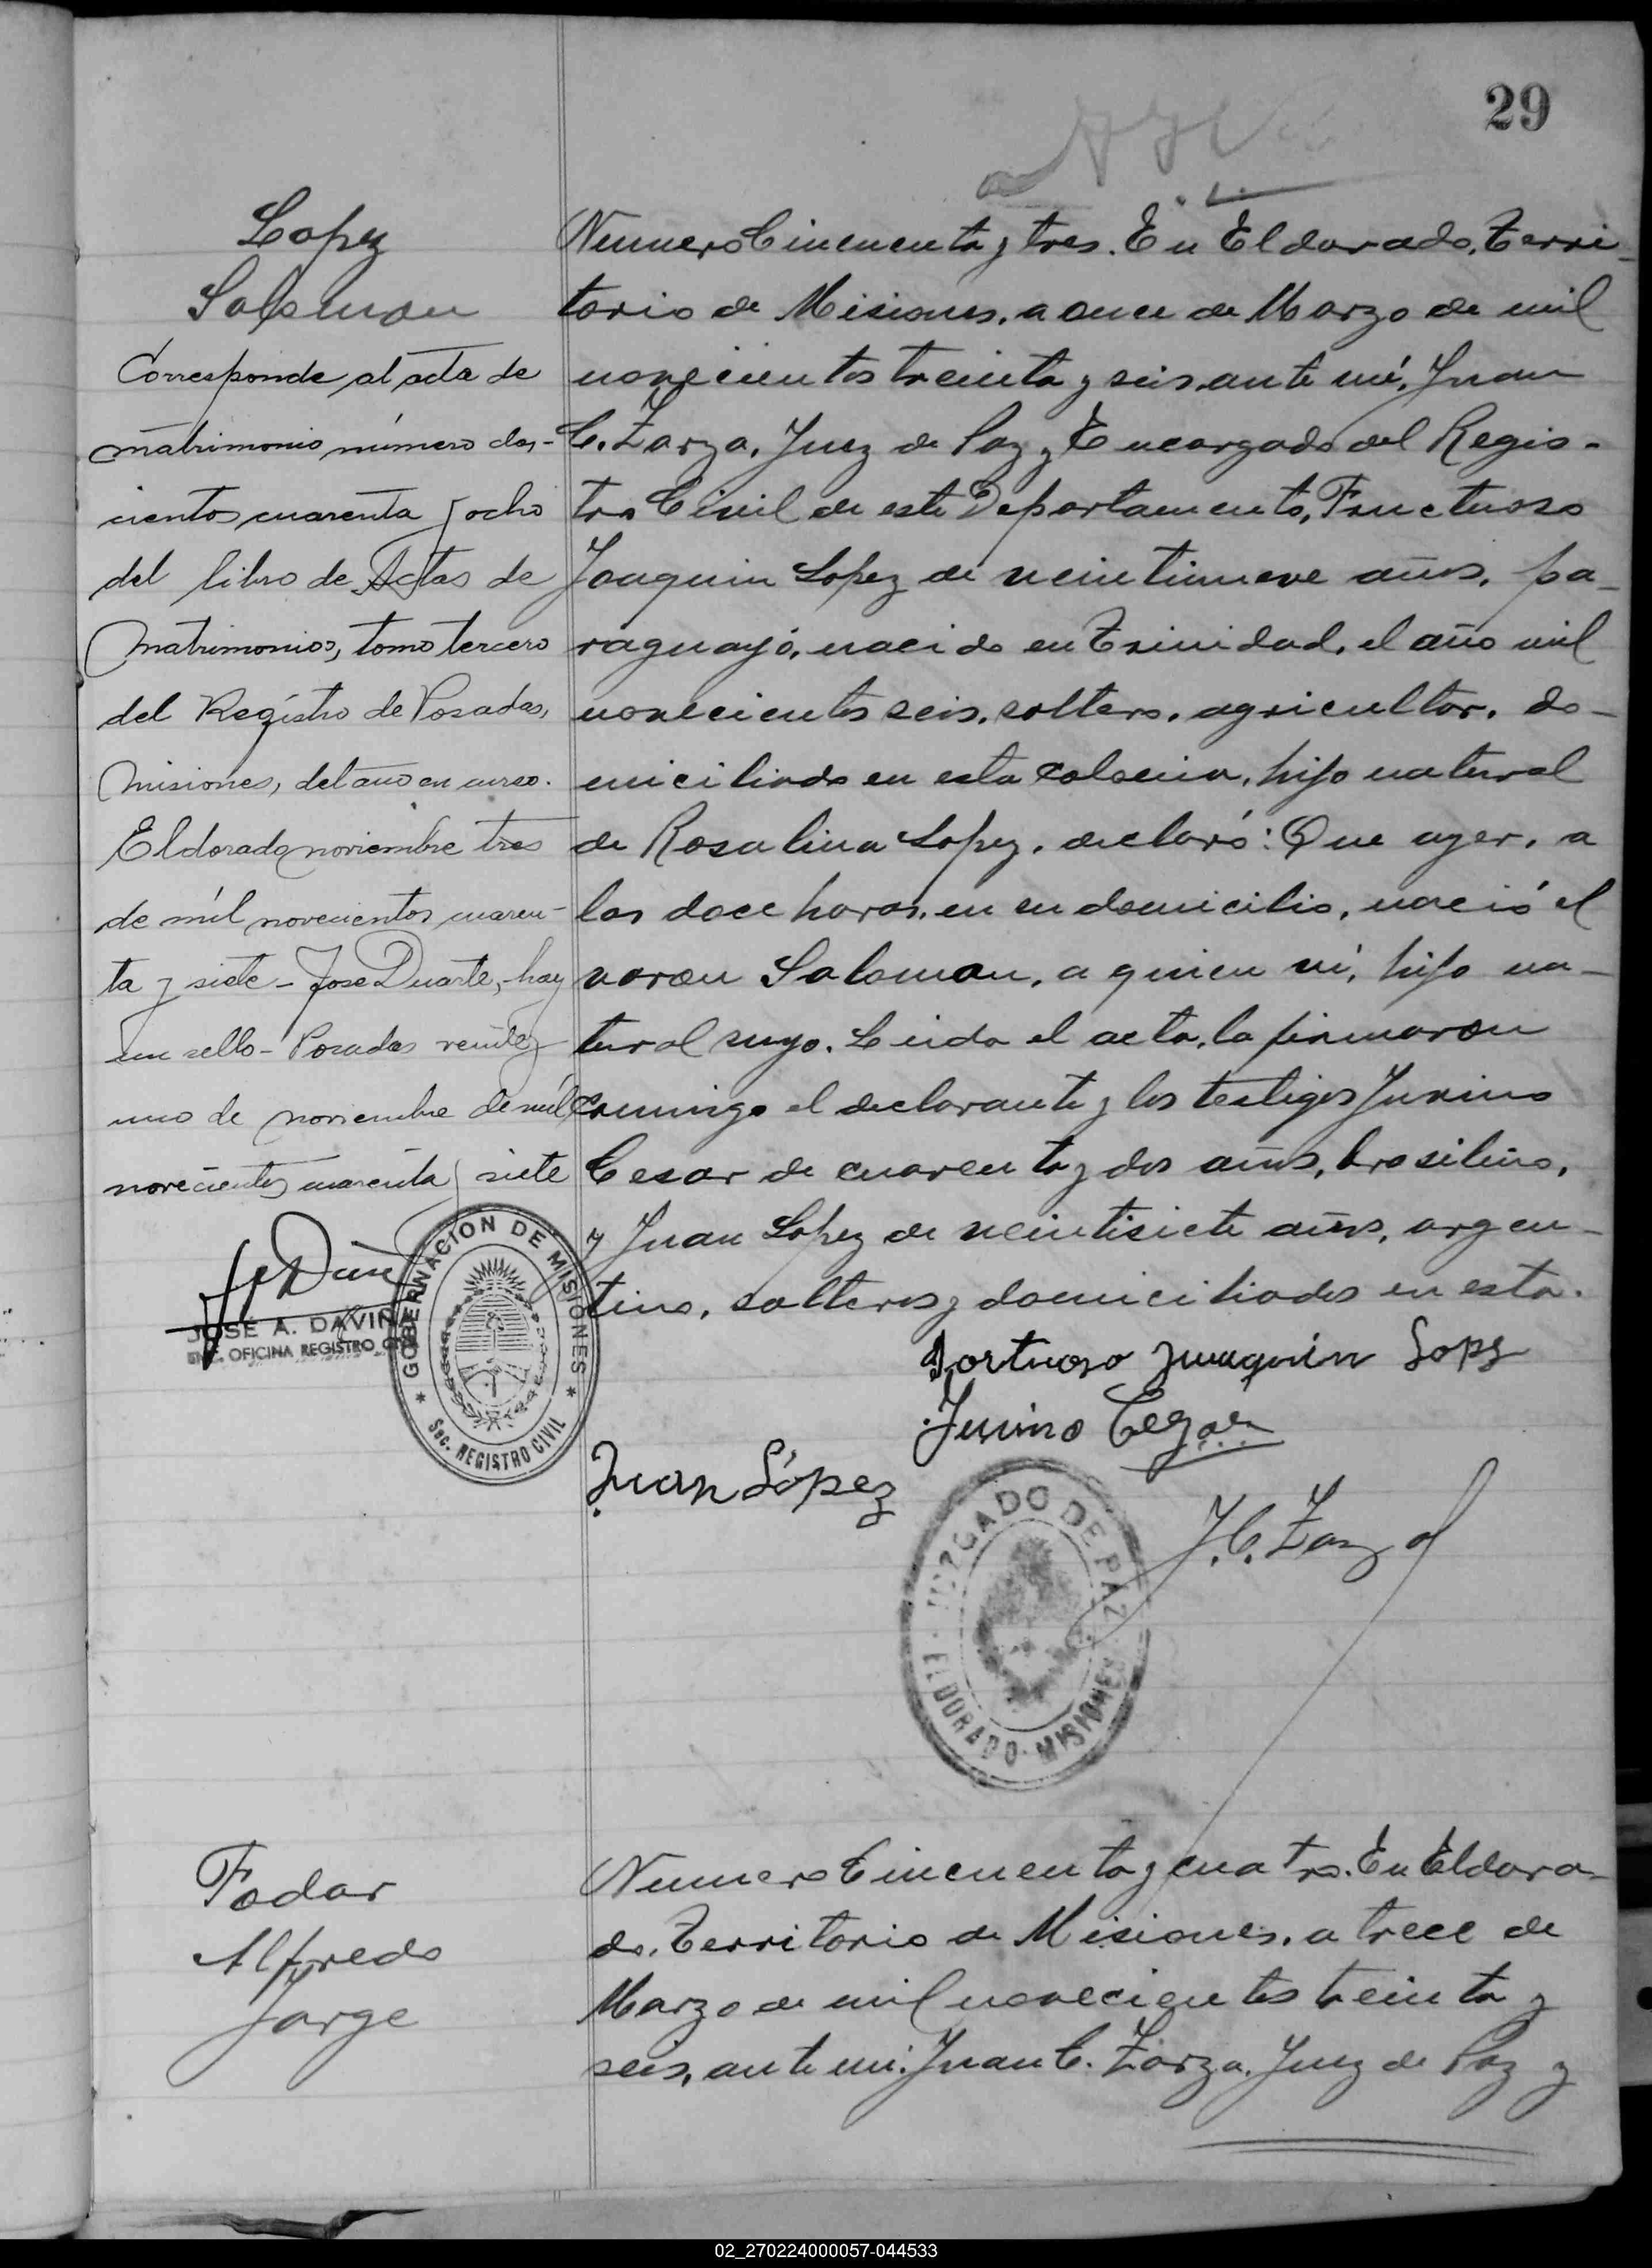 29
Lopez
Saloman
Corresponde al acta de
matrimonio número dos-
cientos cuarenta y ocho
del libro de Actas de
Matrimonios, tomo tercero
del Registro de Posadas,
Misiones, del año en curso.
Eldorado noviembre tres
de mil novecientos cuaren-
ta y siete - Jose Duarte, - hay
un sello - Posadas veinte y
uno de noviembre de mil
novecientos cuarenta y siete
JOSE A. DAVIÑA
ENC. OFICINA REGISTRO CIVIL
GOBERNACION DE MISIONES
Sec. REGISTRO CIVIL
Numero Cincuenta y tres. En Eldorado, Terri-
torio de Misiones, a once de Marzo de mil
novecientos treinta y seis, ante mí, Juan
C. Zarza, Juez de Paz y Encargado del Regis-
tro Civil de este Departamento, Fructuoso
Joaquin Lopez de veintinueve años, pa-
raguayo, nacido en Trinidad, el año mil
novecientos seis, soltero, agricultor, do-
miciliado en esta colonia, hijo natural
de Rosalina Lopez, declaró: Que ayer, a
las doce horas, en su domicilio, nació el
varon Saloman, a quien ví, hijo na-
tural suyo. Leida el acta, la firmaron
conmigo el declarante y los testigos Junino
Cesar de cuarenta y dos años, brasilino,
y Juan Lopez de veintisiete años, argen-
tino, solteros y domiciliados en esta.
Fortuoso Juaquin Lopz
Junino Cezar
Juan López
J. C. Zarza
JUZGADO DE PAZ
ELDORADO - MISIONES
Fodar
Alfredo
Jorge
Numero Cincuenta y cuatro. En Eldora-
do, Territorio de Misiones, a trece de
Marzo de mil novecientos treinta y
seis, ante mi: Juan C. Zarza, Juez de Paz y
02_270224000057-044533